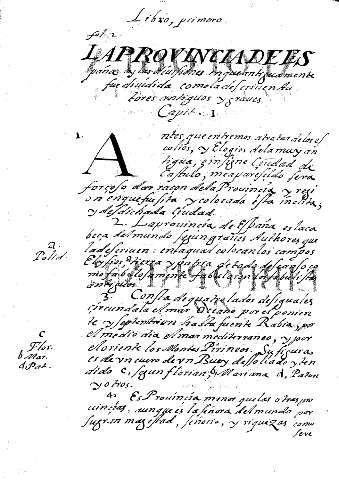 Libro, primero
fol. 2
LA PROVINCIA DE ES
paña y las divisiones en que antiguamente
fue dividida como la describen Au
tores antiguos y graves
Capit. 1
1.
Antes que entremos a tratar de los es
colios, y Elogios de la muy an
tigua, e insigne Ciudad de
Castulo, me a parecido sera
forçoso dar raçon de la Provincia y regi
on en que fu sita y colocada esta inclita,
y desdichada Ciudad.
2. La provincia de España es la ca
beça del mundo segun graves Authores que
la describen: en la qual los campos
antiguos.
a.
Polid.
3. Consta de quatro lados desiguales
circundala el mar Oceano por el ponien
te y septentrion hasta fuente Rabia, por
el medio dia el mar mediterraneo, y por
el oriente los Montes Pirineos. Su figura
es de un cuero de un Buey desollado, y ten
dido c, segun Florian, b, Mariana d, Paton
y otros.
c
Flos.
b. Mar.
d. Pat.
4. Es Provincia menor que las otras pro
vincias, aunque es la señora del mundo por
su gran magestad, señorio, y riquezas como
seve